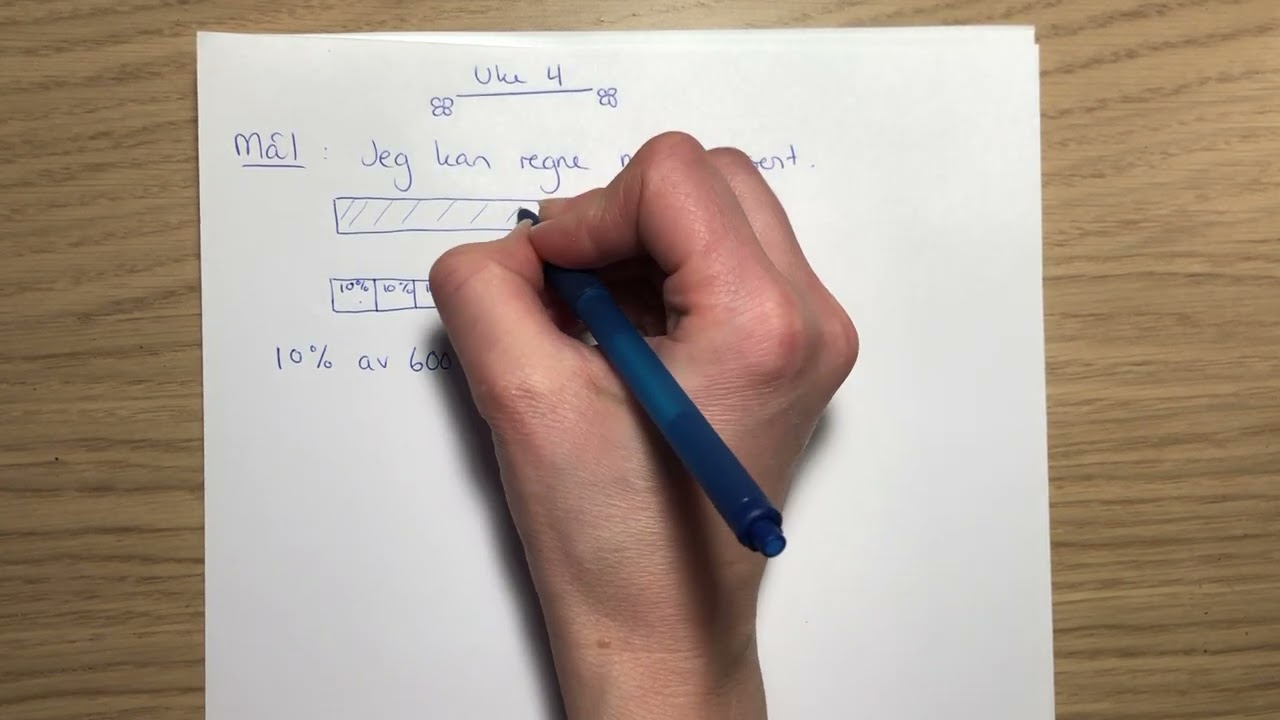 Uke 4
Mål : Jeg kan regne
10% 10%
10% av 600